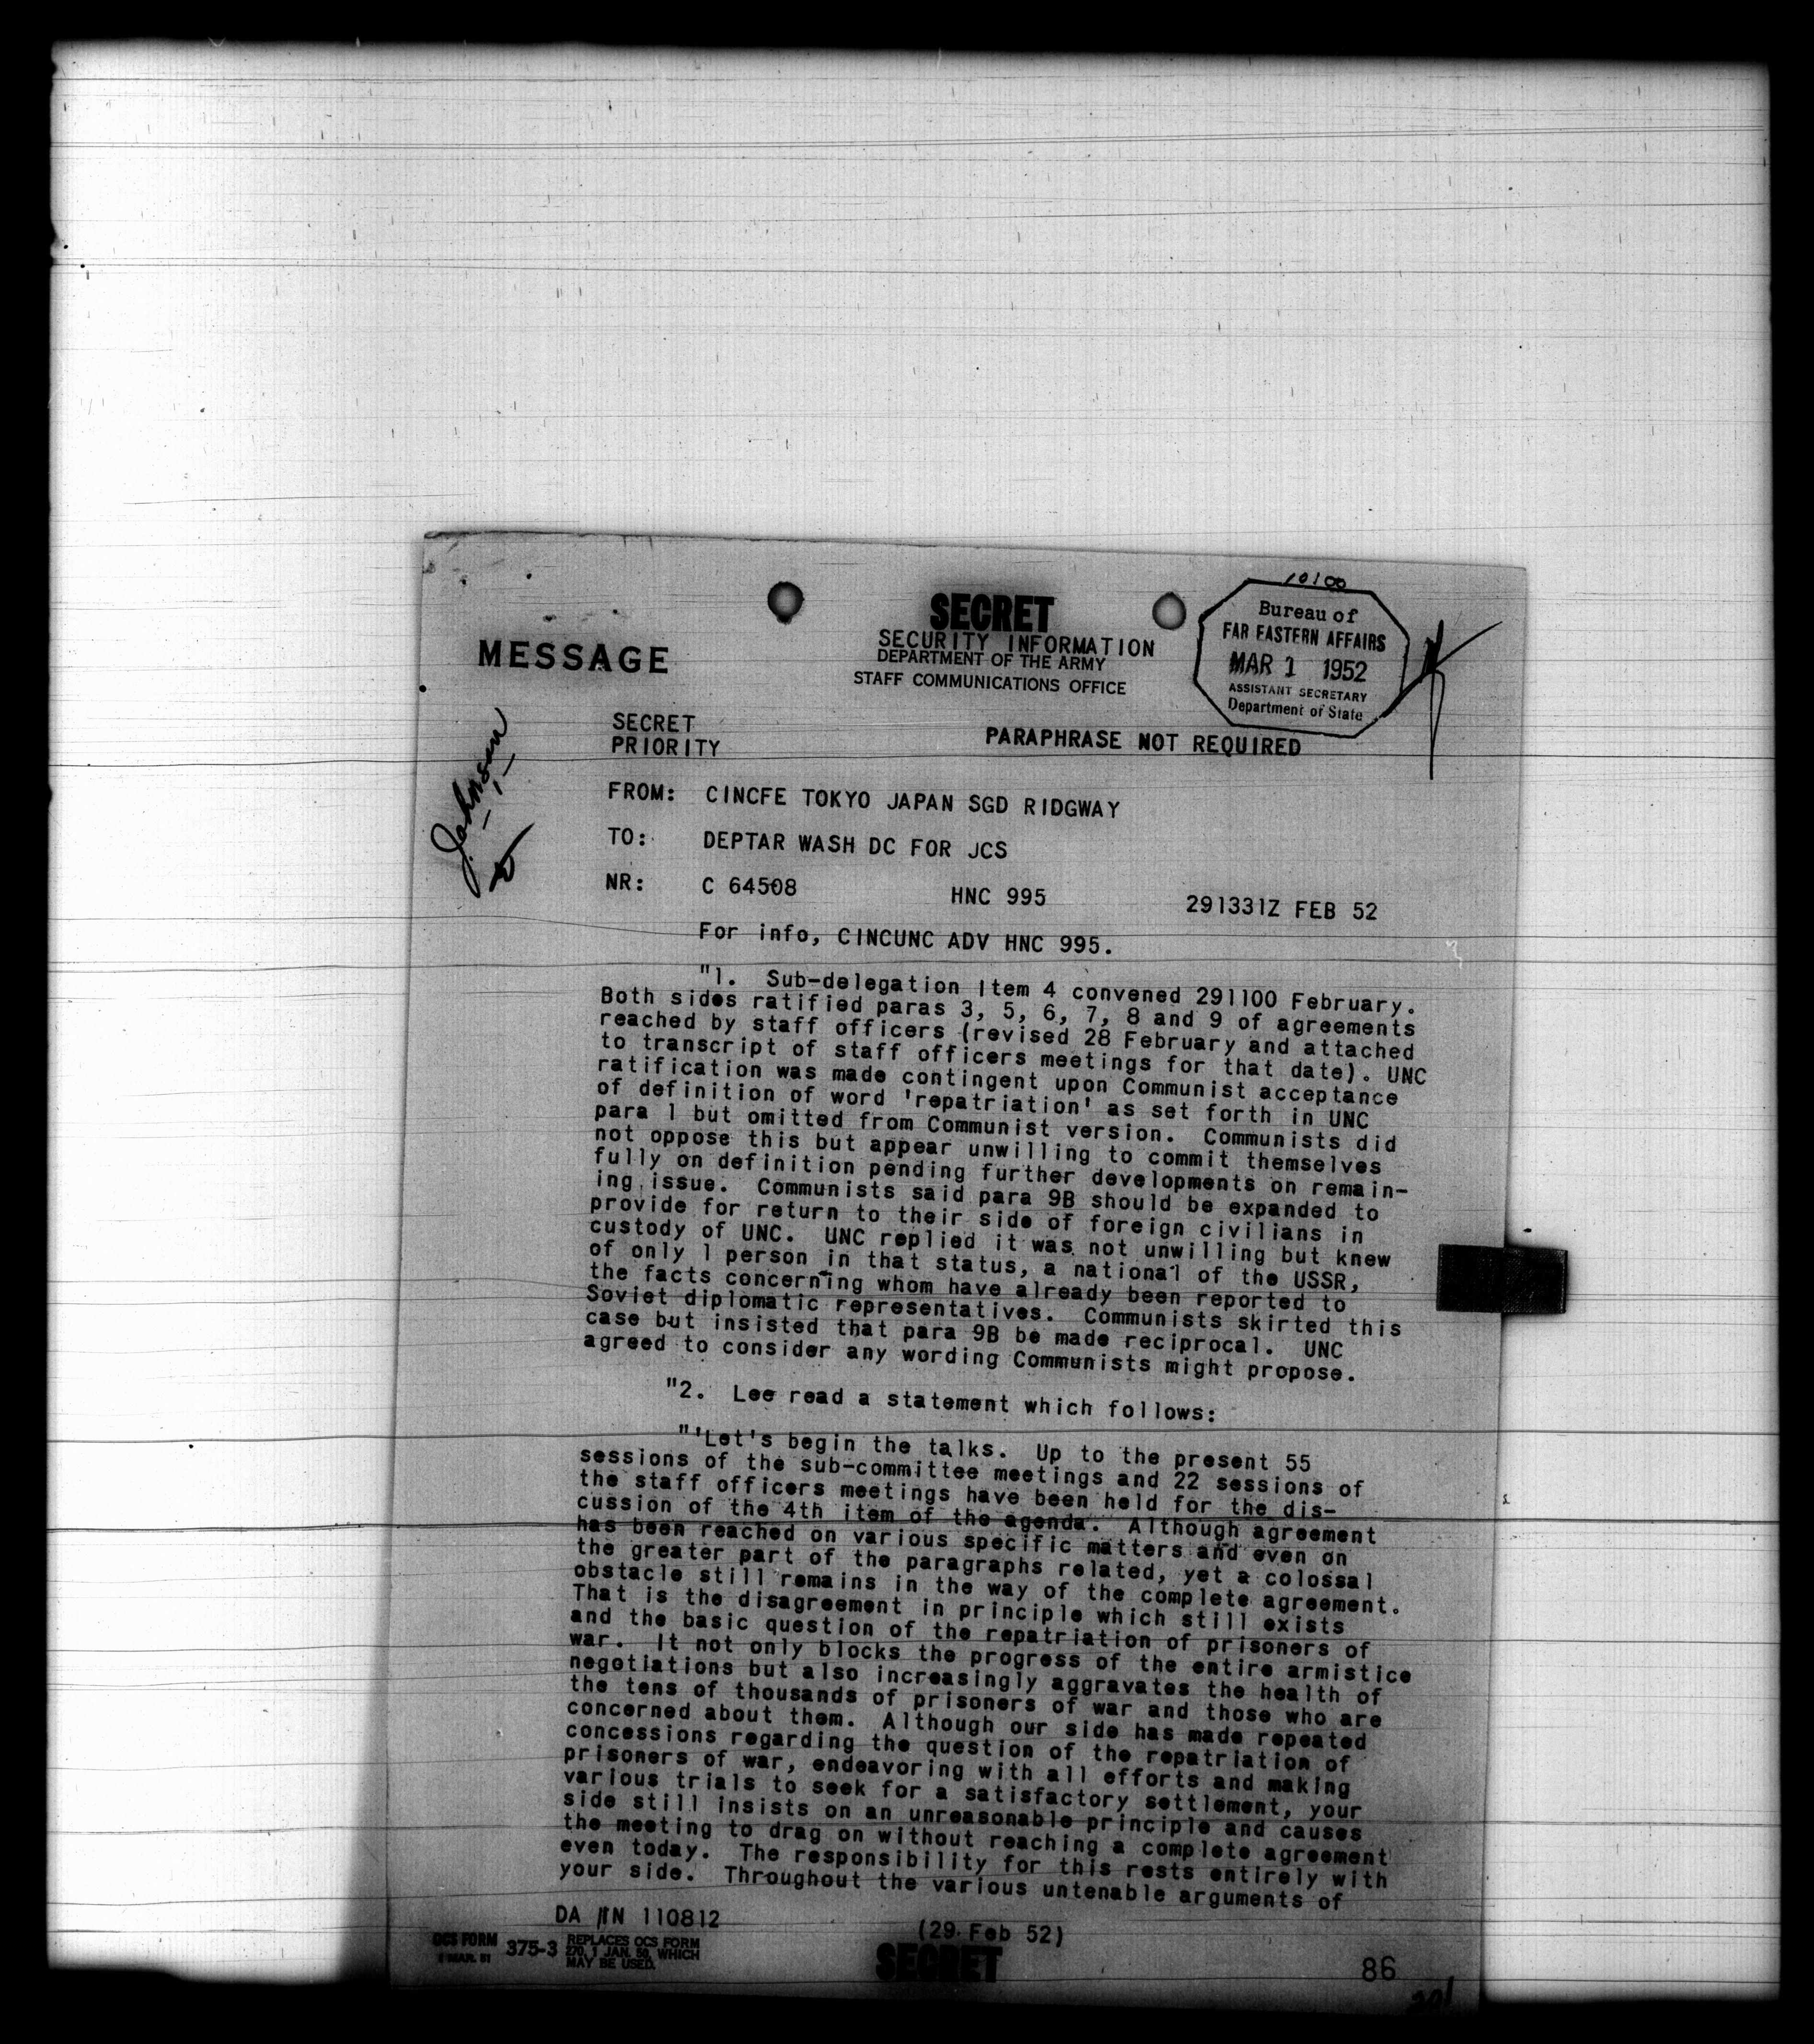 10100
SECRET
SECURITY INFORMATION
DEPARTMENT OF THE ARMY
STAFF COMMUNICATIONS OFFICE
MESSAGE
Bureau of
FAR EASTERN AFFAIRS
MAR 1 1952
ASSISTANT SECRETARY
Department of State
Johnson
SECRET
PRIORITY
PARAPHRASE NOT REQUIRED
FROM: CINCFE TOKYO JAPAN SGD RIDGWAY
TO: DEPTAR WASH DC FOR JCS
NR: C 64508 HNC 995 291331Z FEB 52
For info, CINCUNC ADV HNC 995.
"1. Sub-delegation Item 4 convened 291100 February.
Both sides ratified paras 3, 5, 6, 7, 8 and 9 of agreements
reached by staff officers (revised 28 February and attached
to transcript of staff officers meetings for that date). UNC
ratification was made contingent upon Communist acceptance
of definition of word 'repatriation' as set forth in UNC
para 1 but omitted from Communist version. Communists did
not oppose this but appear unwilling to commit themselves
fully on definition pending further developments on remain-
ing issue. Communists said para 9B should be expanded to
provide for return to their side of foreign civilians in
custody of UNC. UNC replied it was not unwilling but knew
of only 1 person in that status, a national of the USSR,
the facts concerning whom have already been reported to
Soviet diplomatic representatives. Communists skirted this
case but insisted that para 9B be made reciprocal. UNC
agreed to consider any wording Communists might propose.
"2. Lee read a statement which follows:
"'Let's begin the talks. Up to the present 55
sessions of the sub-committee meetings and 22 sessions of
the staff officers meetings have been held for the dis-
cussion of the 4th item of the agenda. Although agreement
has been reached on various specific matters and even on
the greater part of the paragraphs related, yet a colossal
obstacle still remains in the way of the complete agreement.
That is the disagreement in principle which still exists
and the basic question of the repatriation of prisoners of
war. It not only blocks the progress of the entire armistice
negotiations but also increasingly aggravates the health of
the tens of thousands of prisoners of war and those who are
concerned about them. Although our side has made repeated
concessions regarding the question of the repatriation of
prisoners of war, endeavoring with all efforts and making
various trials to seek for a satisfactory settlement, your
side still insists on an unreasonable principle and causes
the meeting to drag on without reaching a complete agreement
even today. The responsibility for this rests entirely with
your side. Throughout the various untenable arguments of
DA IN 110812
(29 Feb 52)
OCS FORM
1 MAR. 51
375-3
REPLACES OCS FORM
270, 1 JAN. 50, WHICH
MAY BE USED.
SECRET
86